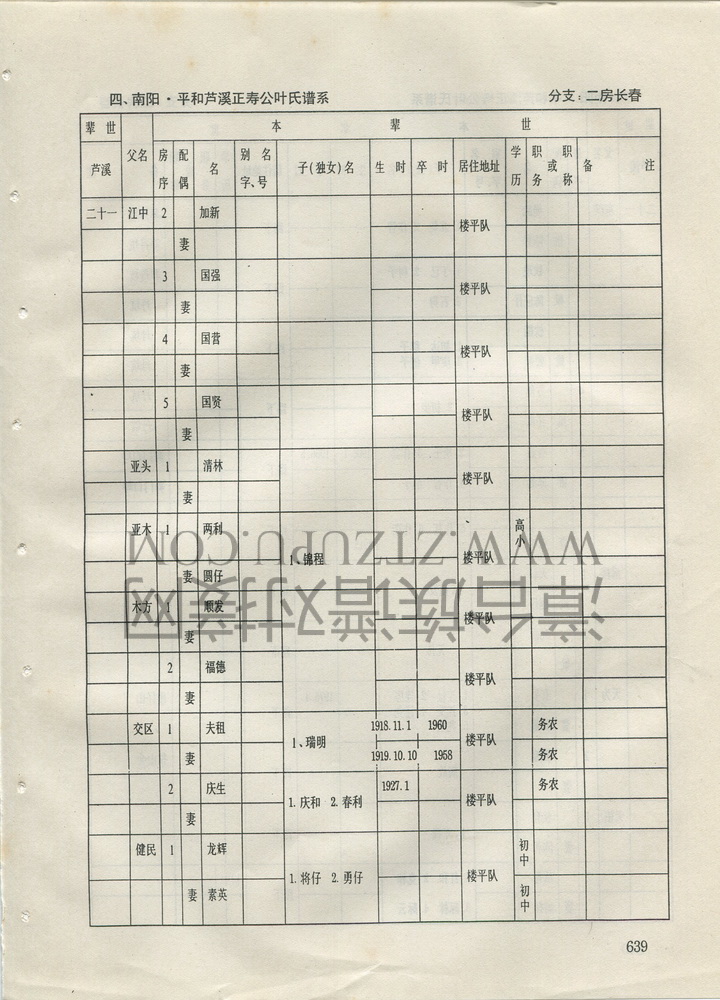 四、南阳·平和芦溪正寿公叶氏谱系 分支:二房长春
辈世 本 辈 世
芦溪 父名 房序 配偶 名 别名字、号 子(独女)名 生时 卒时 居住地址 学历 职务 职或称 备注
二十一 江中 2 加新 楼平队
妻
3 国强 楼平队
妻
4 国营 楼平队
妻
5 国贤 楼平队
妻
亚头 1 清林 楼平队
妻
亚木 1 两利 1、锦程 楼平队 高小
妻 圆仔
木方 1 顺发 楼平队
妻
2 福德 楼平队
妻
交区 1 夫祖 1、瑞明 1918.11.1 1960 楼平队 务农
妻 1919.10.10 1958 务农
2 庆生 1.庆和 2.春利 1927.1 楼平队 务农
妻
健民 1 龙辉 1.将仔 2.勇仔 楼平队 初中
妻 素英 初中
639
WWW.ZTZUPU.COM
漳台族谱对接网